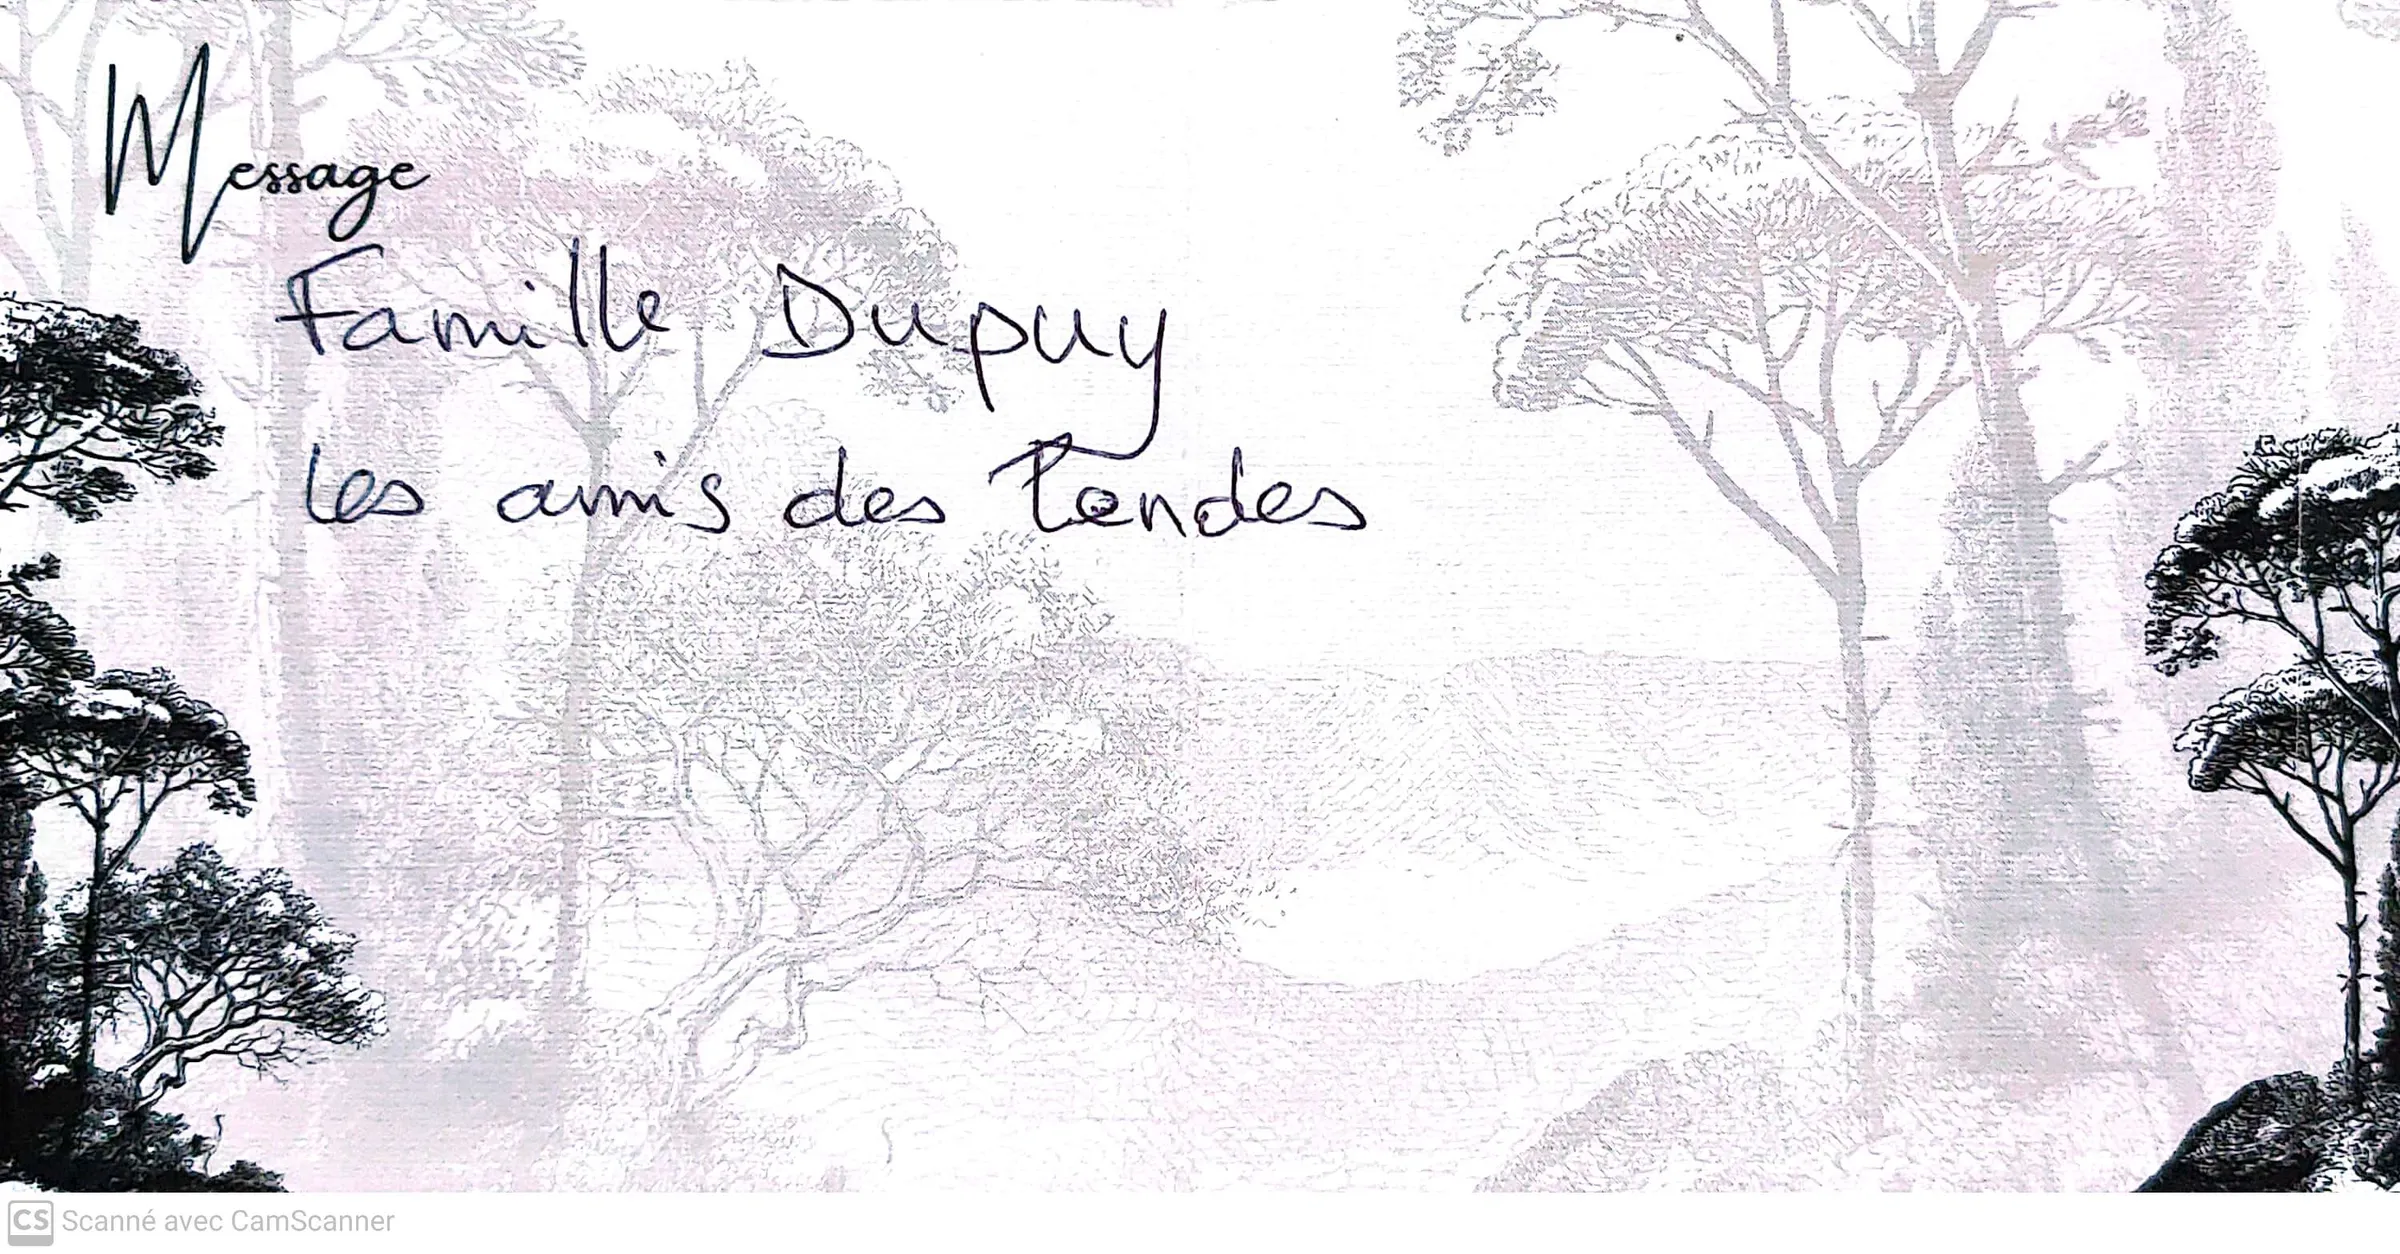 Message
Famille Dupuy
les amis des Tendes
CS Scanné avec CamScanner